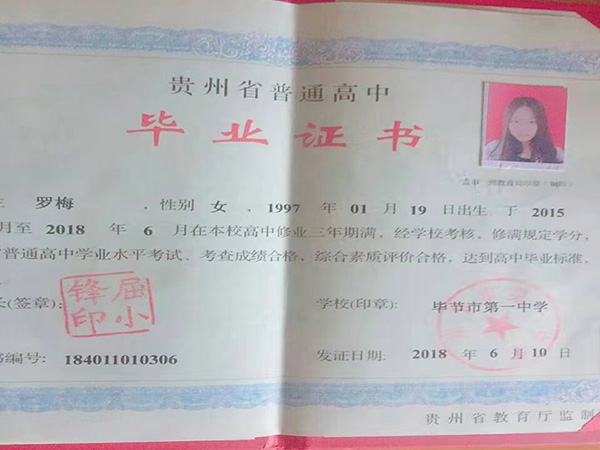 贵州省普通高中
毕业证书
罗梅 ,性别 女 , 1997 年 01 月 19 日出生 于 2015
月至 2018 年 6 月在本校高中修业三年期满, 经学校考核, 修满规定学分,
普通高中学业水平考试、考查成绩合格, 综合素质评价合格, 达到高中毕业标准,
长(签章):
屈小锋印
学校(印章): 毕节市第一中学
编号: 184011010306
发证日期: 2018 年 6 月 10 日
贵州省教育厅监制